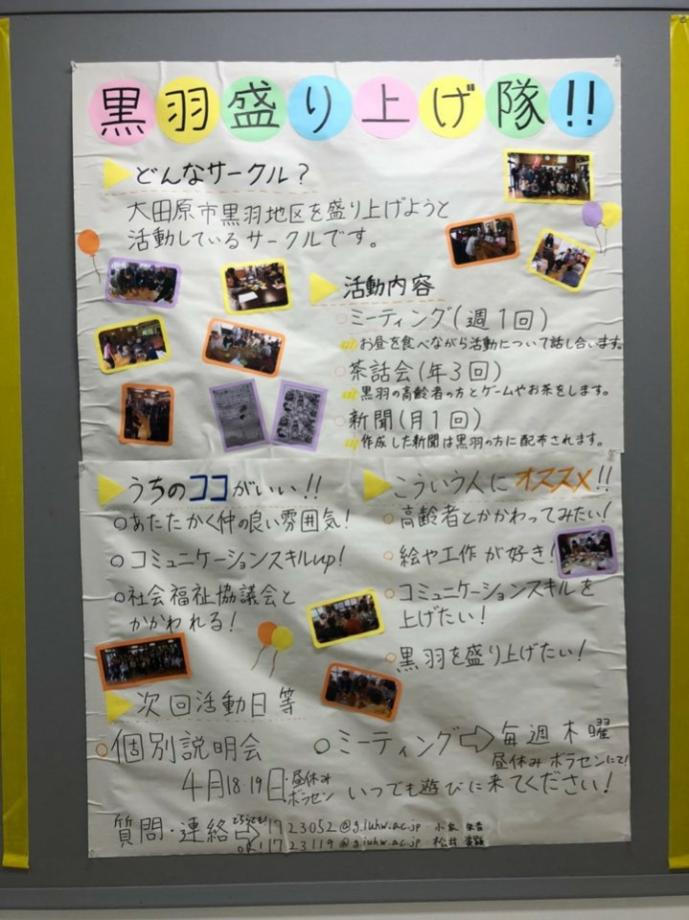 黒羽盛り上げ隊!!
どんなサークル?
大田原市黒羽地区を盛り上げようと
活動しているサークルです。
活動内容
ミーティング(週1回)
お昼を食べながら活動について話し合います。
茶話会(年3回)
黒羽の高齢者の方とゲームやお茶をします。
新聞(月1回)
作成した新聞は黒羽の方に配布されます。
うちのココがいい!!
あたたかく仲の良い雰囲気!
コミュニケーションスキルup!
社会福祉協議会と
かかわれる!
こういう人にオススメ!!
高齢者とかかわってみたい!
絵や工作が好き!
コミュニケーションスキルを
上げたい!
黒羽を盛り上げたい!
次回活動日等
個別説明会
4月18・19日・昼休み
ボラセン
ミーティング⇨毎週木曜
昼休みボラセンにて!
いつでも遊びに来てください!
質問・連絡⇨1723052@g.iuhw.ac.jp
1723119@g.iuhw.ac.jp 松井